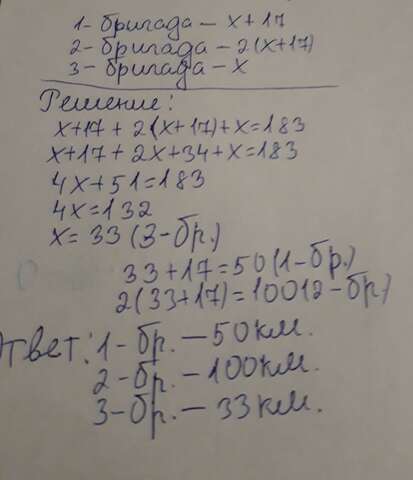 1-бригада - x+17
2-бригада - 2(x+17)
3-бригада - x
Решение:
x+17+2(x+17)+x=183
x+17+2x+34+x=183
4x+51=183
4x=132
x=33(3-бр.)
33+17=50(1-бр.)
2(33+17)=100(2-бр)
Ответ: 1-бр. - 50км.
2-бр. - 100км.
3-бр. - 33км.